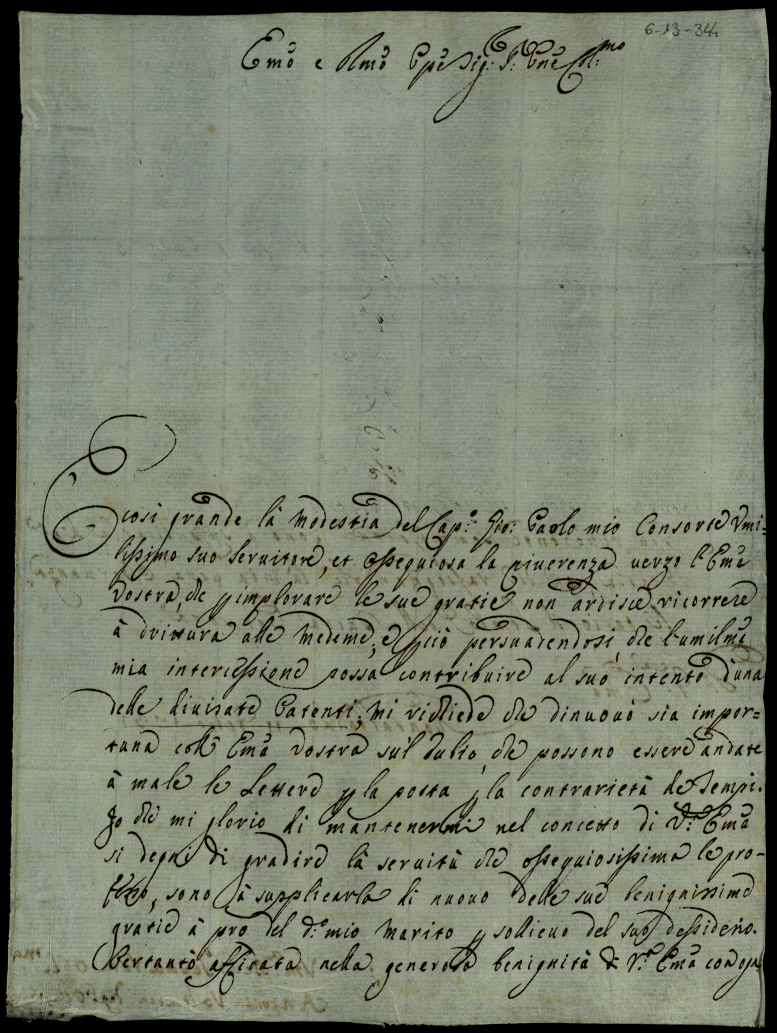 6-13-34
Emo e Rmo Ppe Sig.r P.ne Col.mo
È così grande la modestia del Cap.o Gio: Paolo mio Consorte Vmi-
lissimo suo Seruitore, et ossequiosa la riuerenza verzo l'Ema
Vostra, che p implorare le sue gratie non ardisce ricorrere
à drittura alle medeme, e p ciò persuadendosi, che l'umilma
mia intercessione possa contribuire al suo intento d'una
delle diuisate Patenti, mi richiede che dinuouo sia impor=
tuna coll' Ema Vostra sul dubio, che possono essere andate
à male le Lettere p la posta p la contrarietà de Tempi.
Io che mi glorio di mantenermi nel concetto di V.a Ema
si degni di gradire la seruitù che ossequiosissima le pro-
fesso, sono à supplicarla di nuouo delle sue benignissime
gratie à pro del d.o mio Marito p sollieuo del suo dessiderio.
Pertanto affidata nella generosa benignità di V.a Ema con ogni